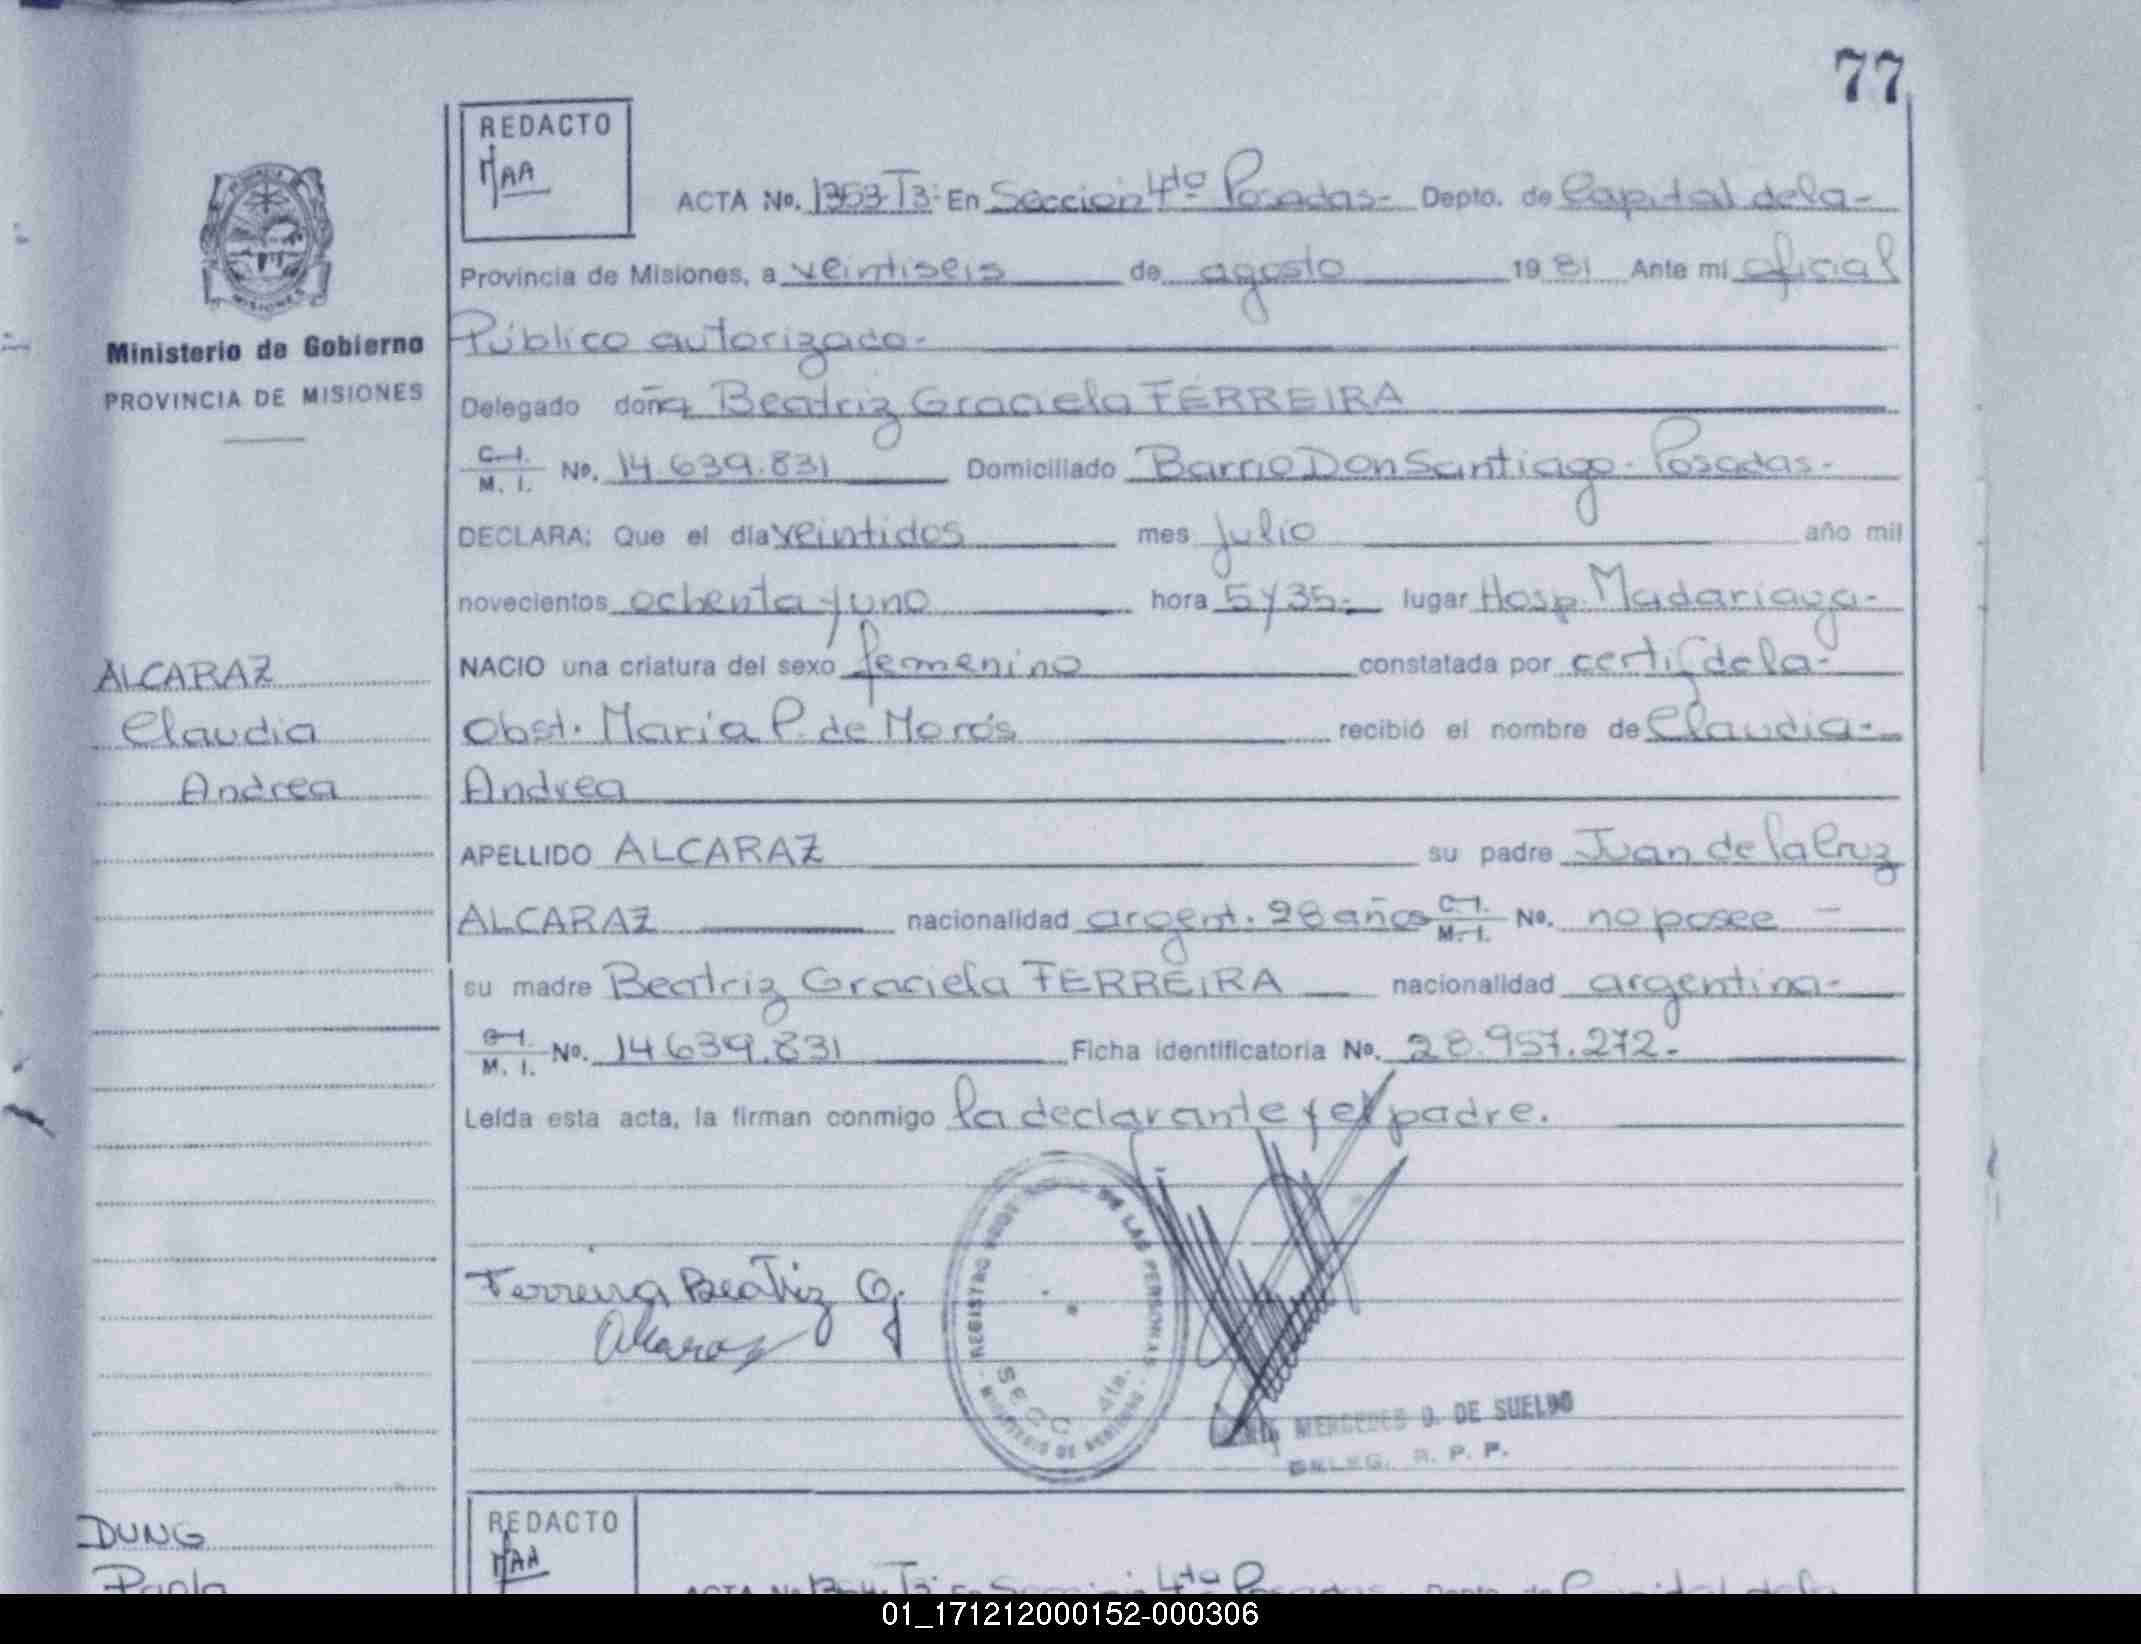 77
REDACTO
MAA
ACTA No. 1353-T3- En Seccion 4ta Posadas- Depto. de Capital dela-
Provincia de Misiones, a veintiseis de agosto 19 81 Ante mi oficial
Ministerio de Gobierno
PROVINCIA DE MISIONES
Público autorizado-
Delegado doña Beatriz Graciela FERREIRA
C.I. M. I. No. 14.639.831 Domiciliado Barrio Don Santiago- Posadas-
DECLARA: Que el día veintidos mes julio año mil
novecientos ochenta y uno hora 5 y 35- lugar Hosp. Madariaga-
ALCARAZ
Claudia
Andrea
NACIO una criatura del sexo femenino constatada por certif de la-
Obst. María P. de Morós recibió el nombre de Claudia-
Andrea
APELLIDO ALCARAZ su padre Juan de la Cruz
ALCARAZ nacionalidad argent. 28 años C.I. M.I. No. no posee -
su madre Beatriz Graciela FERREIRA nacionalidad argentina-
C.I. M. I. No. 14.639.831 Ficha identificatoria No. 28.957.272-
Leída esta acta, la firman conmigo la declarante y el padre.
Ferreira Beatriz G.
Alcaraz
REGISTRO DE LAS PERSONAS
SECC 4ta.
MINISTERIO DE GOBIERNO
MERCEDES D. DE SUELDO
DELEG. R. P. P.
DUNG
Paola
REDACTO
MAA
ACTA No. T3- En Seccion 4ta Posadas- Depto. de Capital dela
01_171212000152-000306